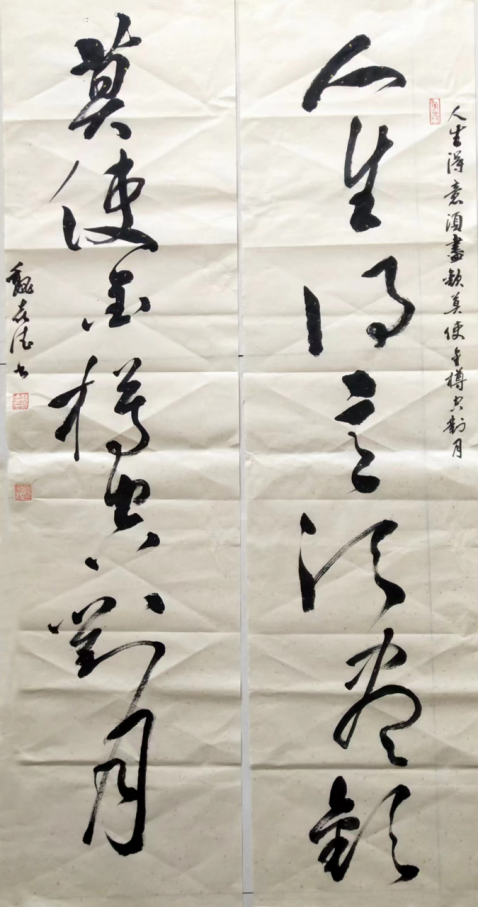 人生得意須盡歡
人生得意須盡歡莫使金樽空對月
莫使金樽空對月
魏嘉德书